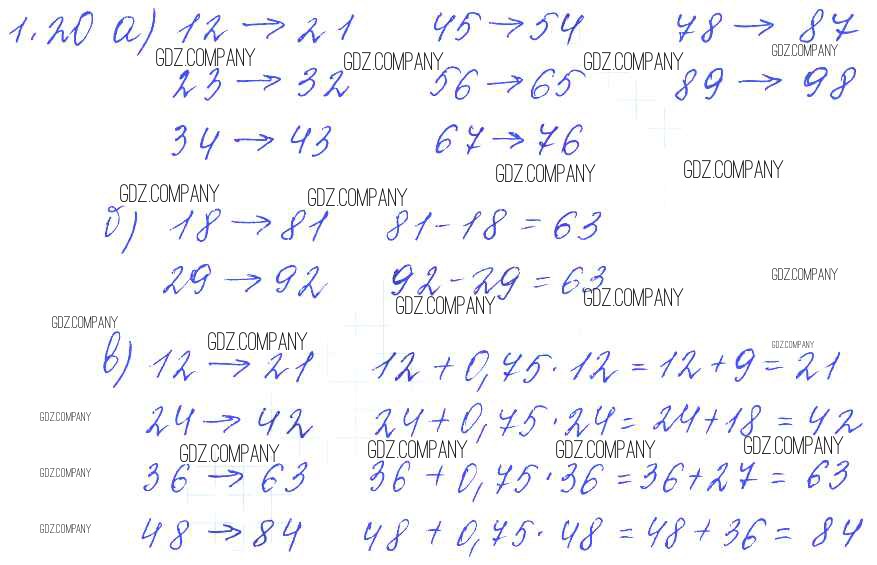 1.20 а) 12 → 21 45 → 54 78 → 87
GDZ.COMPANY GDZ.COMPANY GDZ.COMPANY GDZ.COMPANY
23 → 32 56 → 65 89 → 98
34 → 43 67 → 76
GDZ.COMPANY GDZ.COMPANY
GDZ.COMPANY GDZ.COMPANY
б) 18 → 81 81 - 18 = 63
29 → 92 92 - 29 = 63
GDZ.COMPANY
GDZ.COMPANY GDZ.COMPANY
GDZ.COMPANY
GDZ.COMPANY GDZ.COMPANY
в) 12 → 21 12 + 0,75 · 12 = 12 + 9 = 21
GDZ.COMPANY
24 → 42 24 + 0,75 · 24 = 24 + 18 = 42
GDZ.COMPANY GDZ.COMPANY GDZ.COMPANY GDZ.COMPANY
GDZ.COMPANY
36 → 63 36 + 0,75 · 36 = 36 + 27 = 63
GDZ.COMPANY
48 → 84 48 + 0,75 · 48 = 48 + 36 = 84